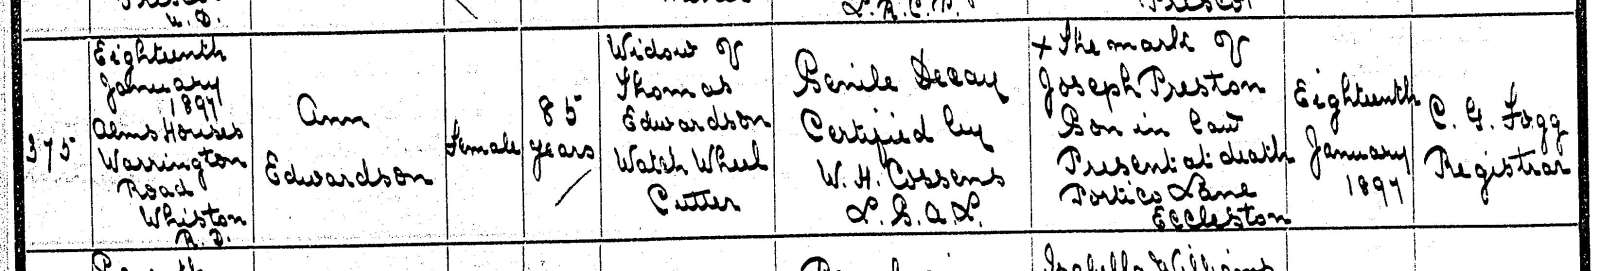 U.D.
L.R.C.P.
Prescot
375
Eighteenth
January
1897
Alms Houses
Warrington
Road
Whiston
R.D.
Ann
Edwardson
Female
85
years
Widow of
Thomas
Edwardson
Watch Wheel
Cutter
Senile Decay
Certified by
W. H. Cossens
L.S.A.L.
X The mark of
Joseph Preston
Son in law
Present at death
Portico Lane
Eccleston
Eighteenth
January
1897
C. G. Fogg
Registrar
Isabella Williams